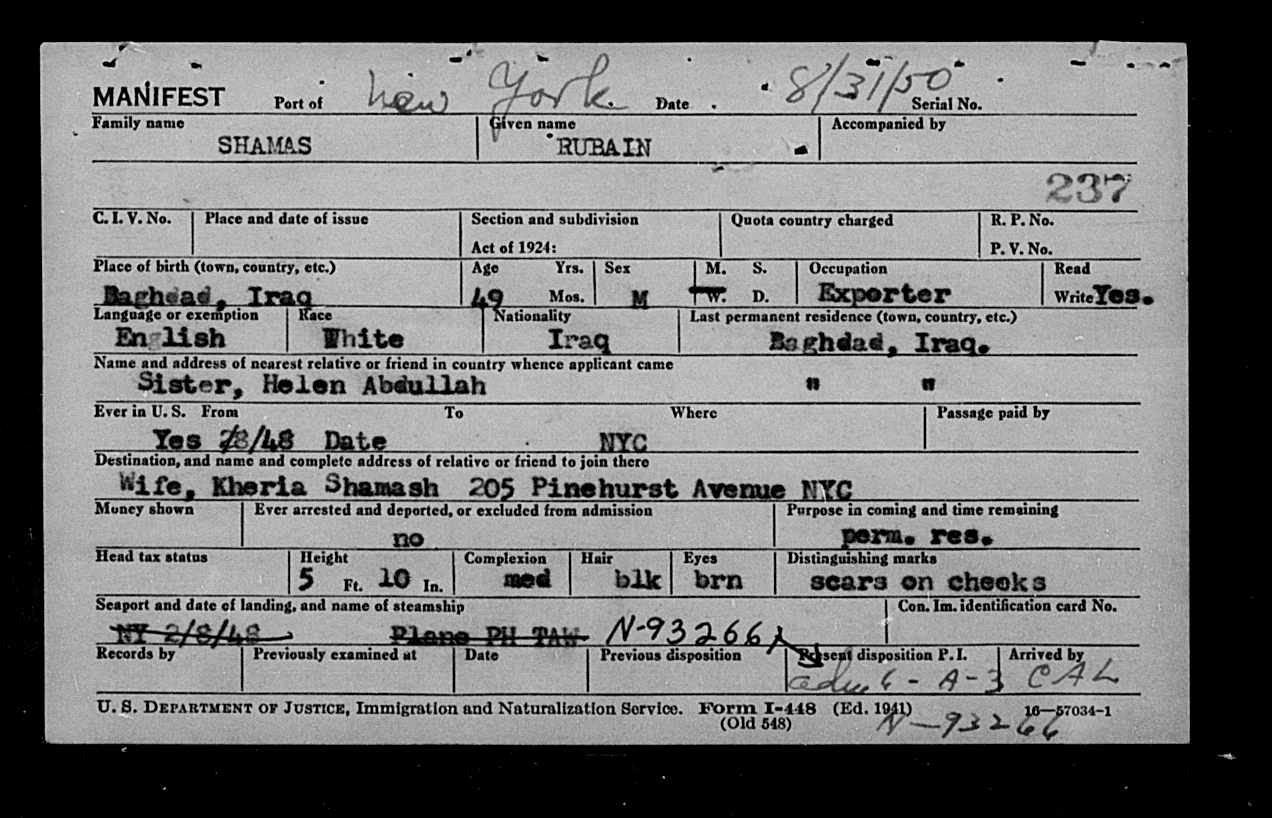 MANIFEST Port of New York Date 8/31/50 Serial No.
Family name Given name Accompanied by
SHAMAS RUBAIN
237
C. I. V. No. Place and date of issue Section and subdivision Quota country charged R. P. No.
Act of 1924: P. V. No.
Place of birth (town, country, etc.) Age Yrs. Sex M. S. Occupation Read
Baghdad, Iraq 49 Mos. M W. D. Exporter Write Yes.
Language or exemption Race Nationality Last permanent residence (town, country, etc.)
English White Iraq Baghdad, Iraq.
Name and address of nearest relative or friend in country whence applicant came
Sister, Helen Abdullah " "
Ever in U. S. From To Where Passage paid by
Yes 2/8/48 Date NYC
Destination, and name and complete address of relative or friend to join there
Wife, Kheria Shamash 205 Pinehurst Avenue NYC
Money shown Ever arrested and deported, or excluded from admission Purpose in coming and time remaining
no perm. res.
Head tax status Height Complexion Hair Eyes Distinguishing marks
5 Ft. 10 In. med blk brn scars on cheeks
Seaport and date of landing, and name of steamship Con. Im. identification card No.
NY 2/8/48 Plane PH TAW N-93266
Records by Previously examined at Date Previous disposition Present disposition P. I. Arrived by
adm 6-A-3 CAL
U. S. DEPARTMENT OF JUSTICE, Immigration and Naturalization Service. Form I-448 (Ed. 1941) 16—57034-1
(Old 548) N-93266